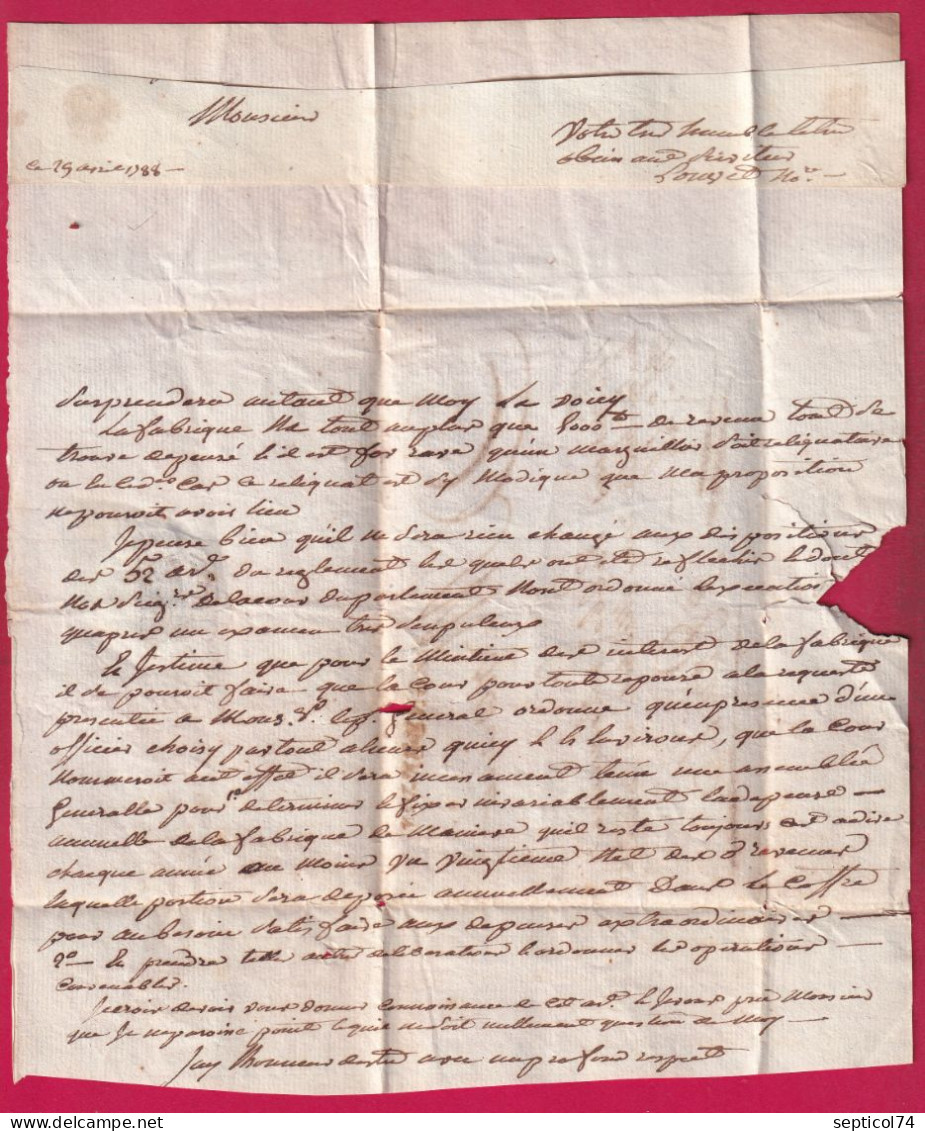 Monsieur
Votre tres humble et tres
obeissant serviteur
le 29 avril 1788 –
surprendera autant que moy La voicy
La fabrique Na tout au plus que 5000# – de revenu tout se
trouve depensé & il est for rare qu'un Marguillier soit reliquataire
car ce reliquat est sy Modique que Ma proposition
ne pouroit avoir lieu
Je pense bien qu'il ne sera rien changé aux dispositions
des 52 art. du reglement les quels ont été reflechis &
Nos Seig.rs de la cour du parlement Nont ordonné lexecution
quapres un examen tres scrupuleux
Et Jestime que pour le Mintient des interest de la fabrique
il se pouroit faire que la Cour pour toute reponse a la requete
presentée a Mons. general ordonne qu'en presence d'un
officier choisy partout ailleurs quicy, que la Cour
Nommeroit a cet effet il sera incessament tenu une assemblée
Generalle pour 1° determiner & fixer invariablement la depense –
annuelle de la fabrique de Maniere quil reste toujours
chaque année au Moins un vingtieme Net des revenus
laquelle portion sera deposée annuellement Dans le Coffre
pour au besoin satisfaire aux depenses extraordinaires –
2° – Et prendre telle autre deliberation & ordonner les operations –
Convenables.
Je crois devoir vous donner Connoissance de cet art. & Je vous prie Monsieur
que Je ne paroisse point & quil ne soit nullement question de Moy –
Jay lhonneur destre avec un profond respect
septicol74